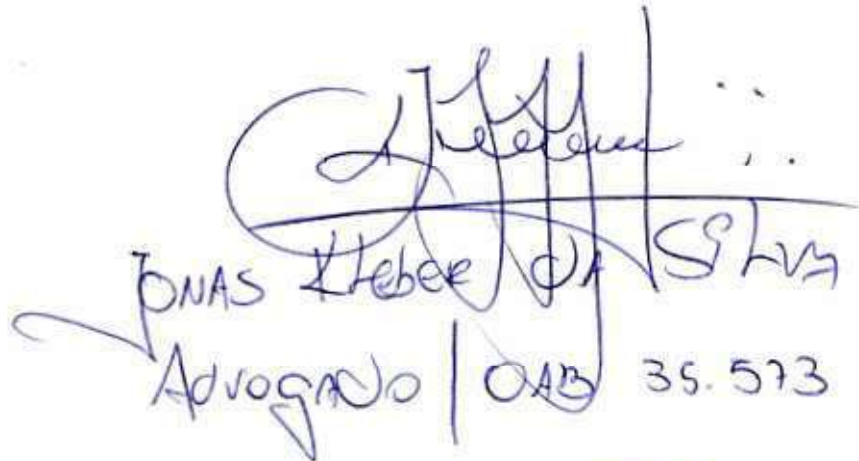 Jonas Kleber da Silva
Advogado | OAB 35.573